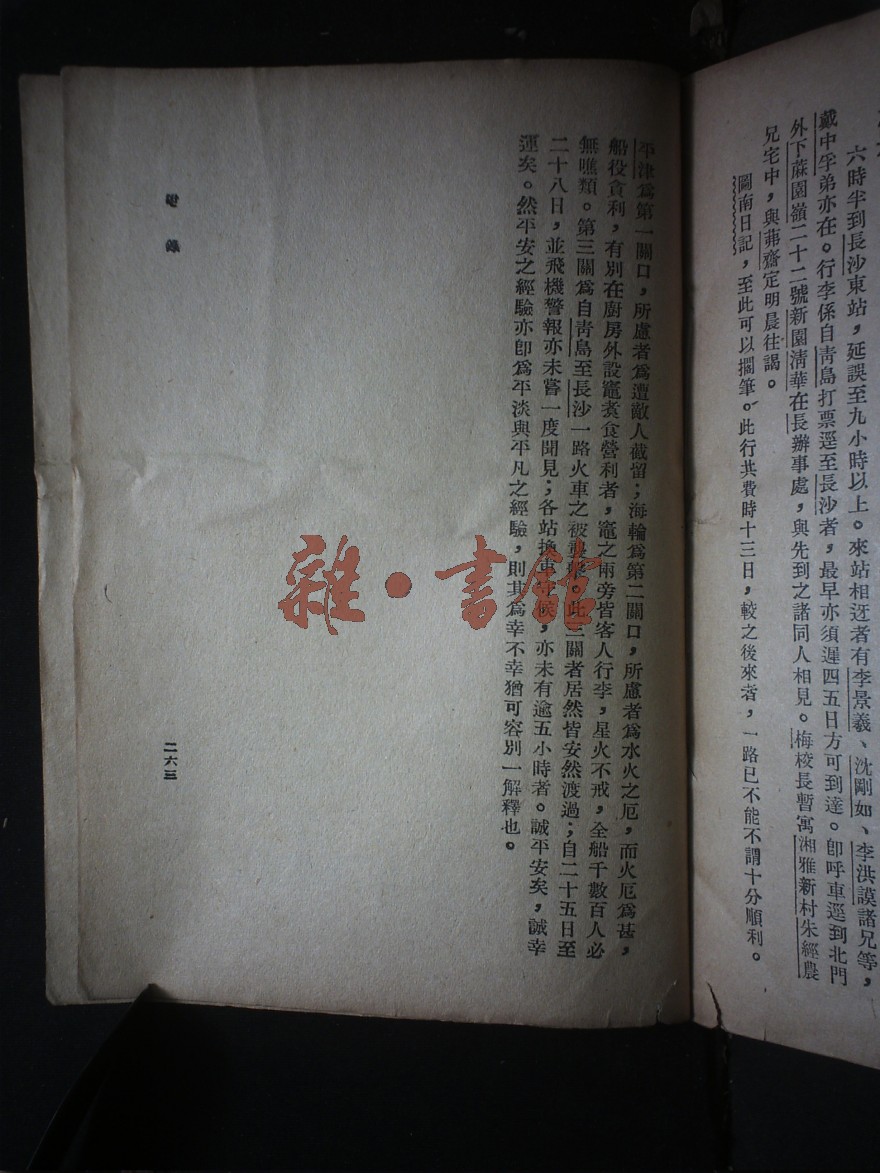 六時半到長沙東站，延誤至九小時以上。來站相迓者有李景羲、沈剛如、李洪謨諸兄等，
戴中孚弟亦在。行李係自青島打票逕至長沙者，最早亦須遲四五日方可到達。卽呼車逕到北門
外下蔴園嶺二十二號新園淸華在長辦事處，與先到之諸同人相見。梅校長暫寓湘雅新村朱經農
兄宅中，與茀齋定明晨往謁。
圖南日記，至此可以擱筆。此行共費時十三日，較之後來者，一路已不能不謂十分順利。
平津爲第一關口，所慮者爲遭敵人截留；海輪爲第二關口，所慮者爲水火之厄，而火厄爲甚，
船役貪利，有別在廚房外設竈煑食營利者，竈之兩旁皆客人行李，星火不戒，全船千數百人必
無噍類。第三關爲自靑島至長沙一路火車之被襲擊。此三關者居然皆安然渡過；自二十五日至
二十八日，並飛機警報亦未嘗一度聞見；各站換車守候，亦未有逾五小時者。誠平安矣，誠幸
運矣。然平安之經驗亦卽爲平淡與平凡之經驗，則其爲幸不幸猶可容別一解釋也。
附錄
二六三
雜·書館